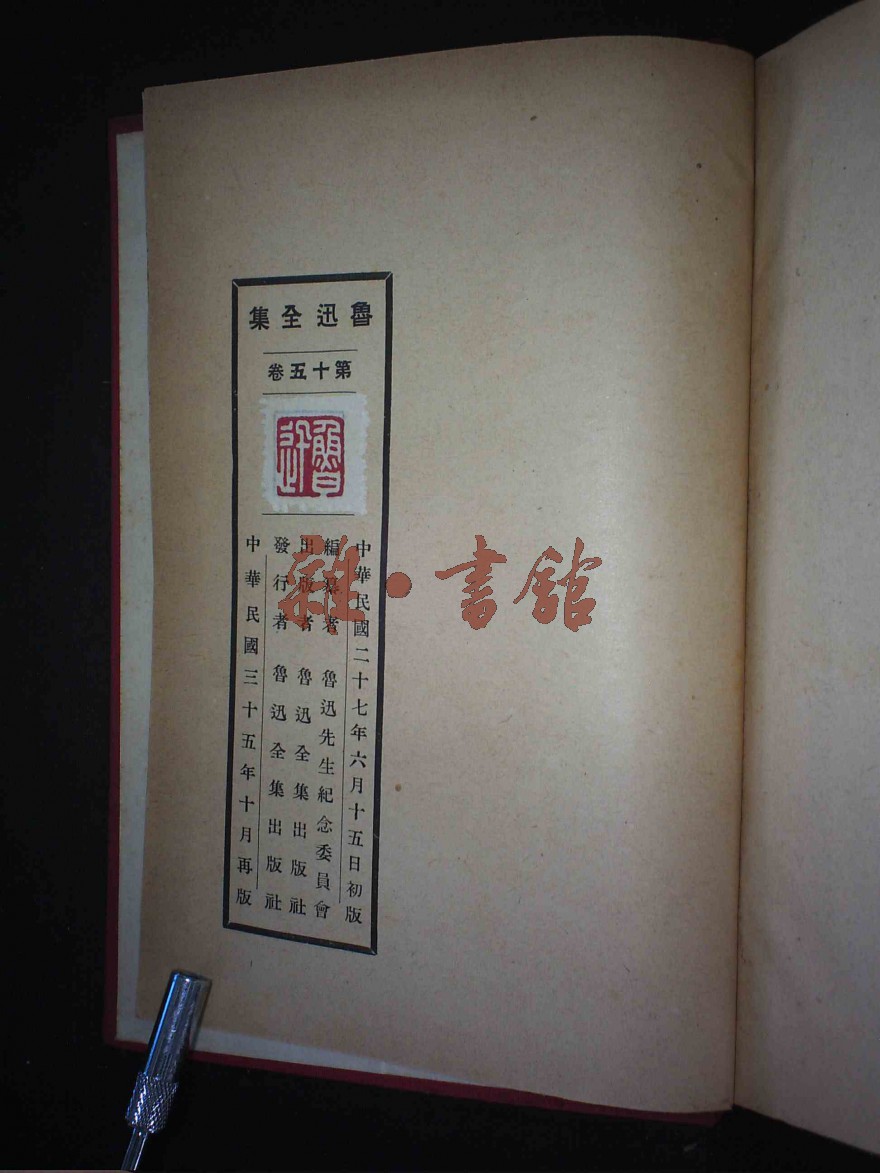 魯迅全集
第十五卷
魯迅
中華民國二十七年六月十五日初版
編纂者 魯迅先生紀念委員會
出版者 魯迅全集出版社
發行者 魯迅全集出版社
中華民國三十五年十月再版
雜·書館